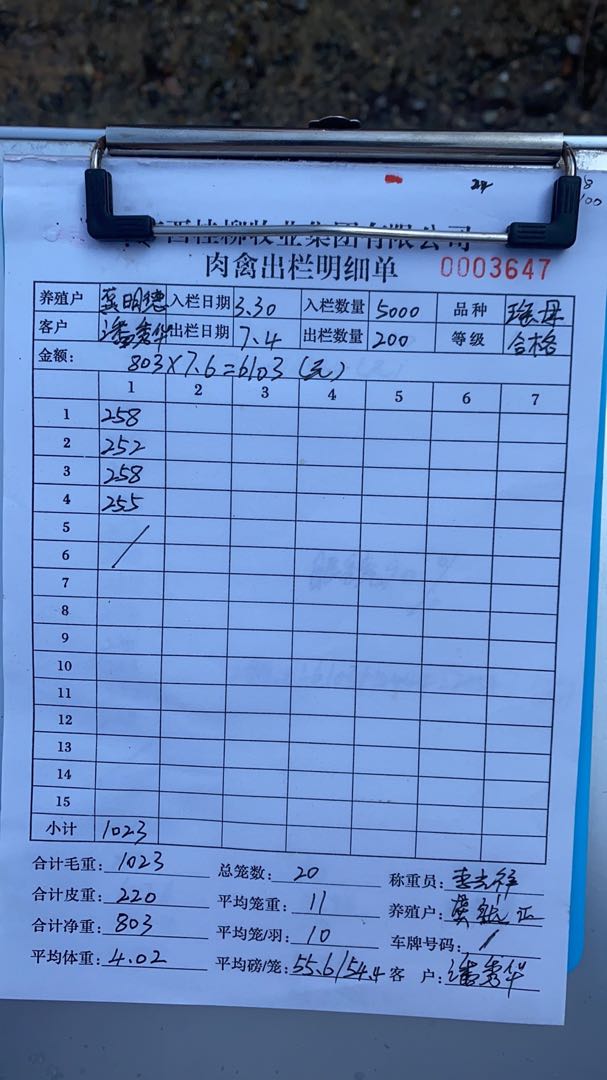 西桂柳牧业集团有限公司
肉禽出栏明细单 0003647
养殖户 明德 入栏日期 3.30 入栏数量 5000 品种 瑶母
客户 潘秀华 出栏日期 7.4 出栏数量 200 等级 合格
金额: 803×7.6=6103(元)
1 2 3 4 5 6 7
1 258
2 252
3 258
4 255
5
6
7
8
9
10
11
12
13
14
15
小计 1023
合计毛重: 1023 总笼数: 20 称重员: 李吉祥
合计皮重: 220 平均笼重: 11 养殖户:
合计净重: 803 平均笼/羽: 10 车牌号码: /
平均体重: 4.02 平均磅/笼: 55.6/54.4 客 户: 潘秀华